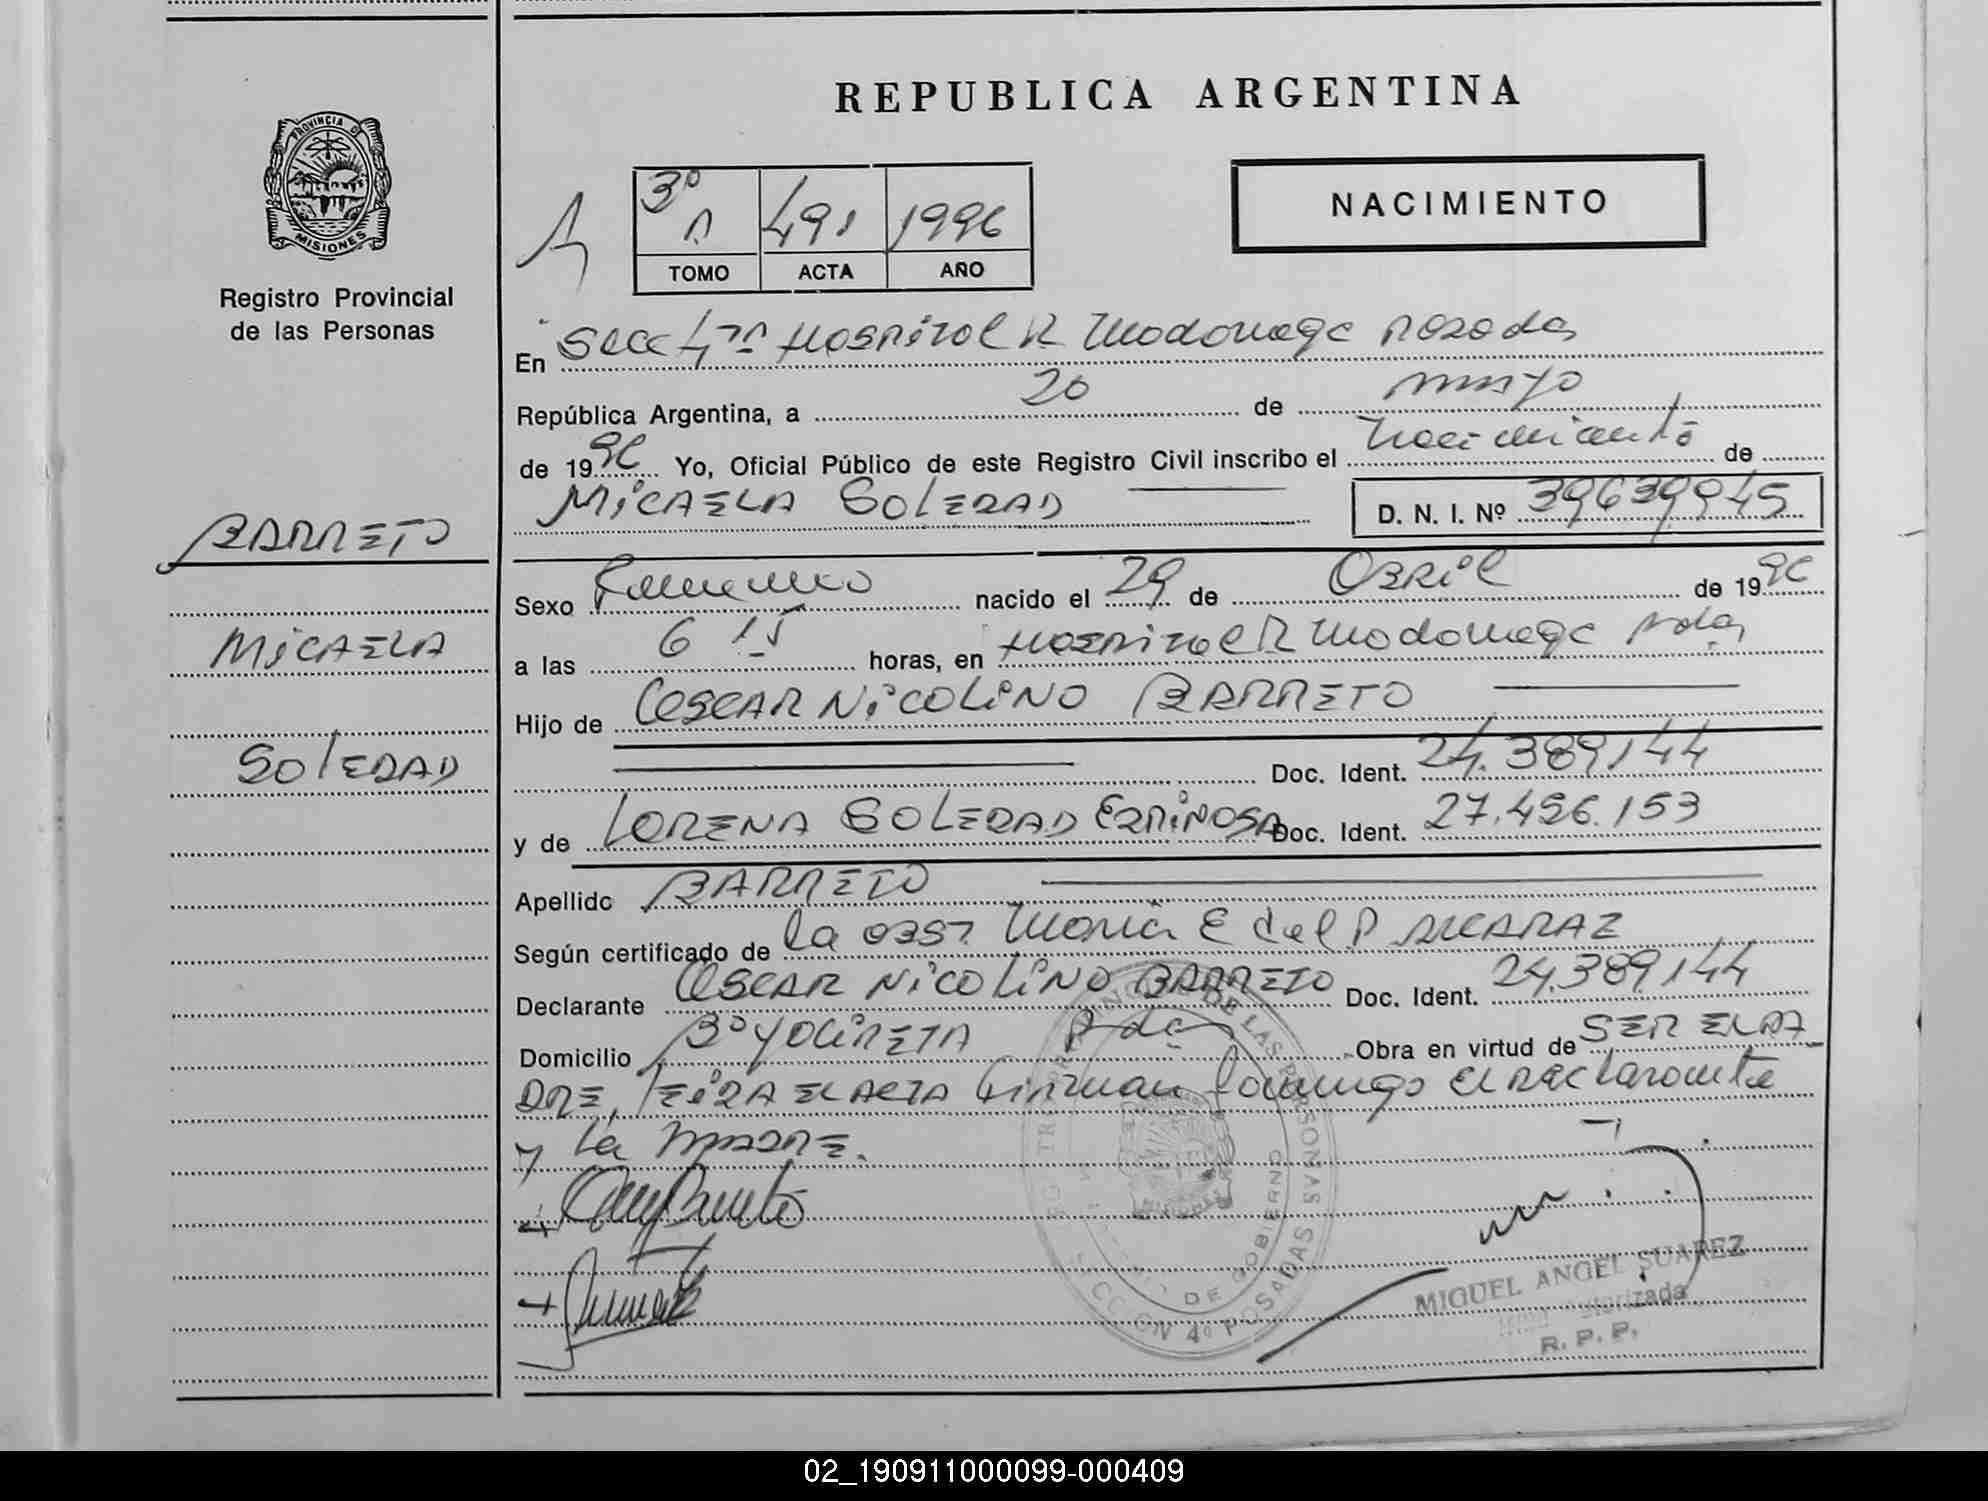 REPUBLICA ARGENTINA
PROVINCIA DE
MISIONES
Registro Provincial
de las Personas
3º A 491 1996
TOMO ACTA AÑO
NACIMIENTO
En Secc 4ta Hospital R Madariaga Posadas
República Argentina, a 20 de mayo
de 1996 Yo, Oficial Público de este Registro Civil inscribo el Nacimiento de
MICAELA SOLEDAD D. N. I. Nº 39639945
BARRETO
MICAELA
SOLEDAD
Sexo Femenino nacido el 29 de Abril de 1996
a las 6 15 horas, en Hospital R Madariaga Pdas
Hijo de OSCAR NICOLINO BARRETO
Doc. Ident. 24.389144
y de LORENA SOLEDAD ESPINOSA Doc. Ident. 27.496.153
Apellido BARRETO
Según certificado de la OBST. Maria E del P ALCARAZ
Declarante OSCAR NICOLINO BARRETO Doc. Ident. 24.389144
Domicilio Bº YACIRETA Pdas Obra en virtud de SER EL PA
DRE, LEIDA EL ACTA Firman conmigo El DECLARANTE
y La MADRE.
DE LAS PERSONAS
DE GOBIERNO
SECCION 4º POSADAS
MIGUEL ANGEL SUAREZ
Autorizada
R. P. P.
02_190911000099-000409